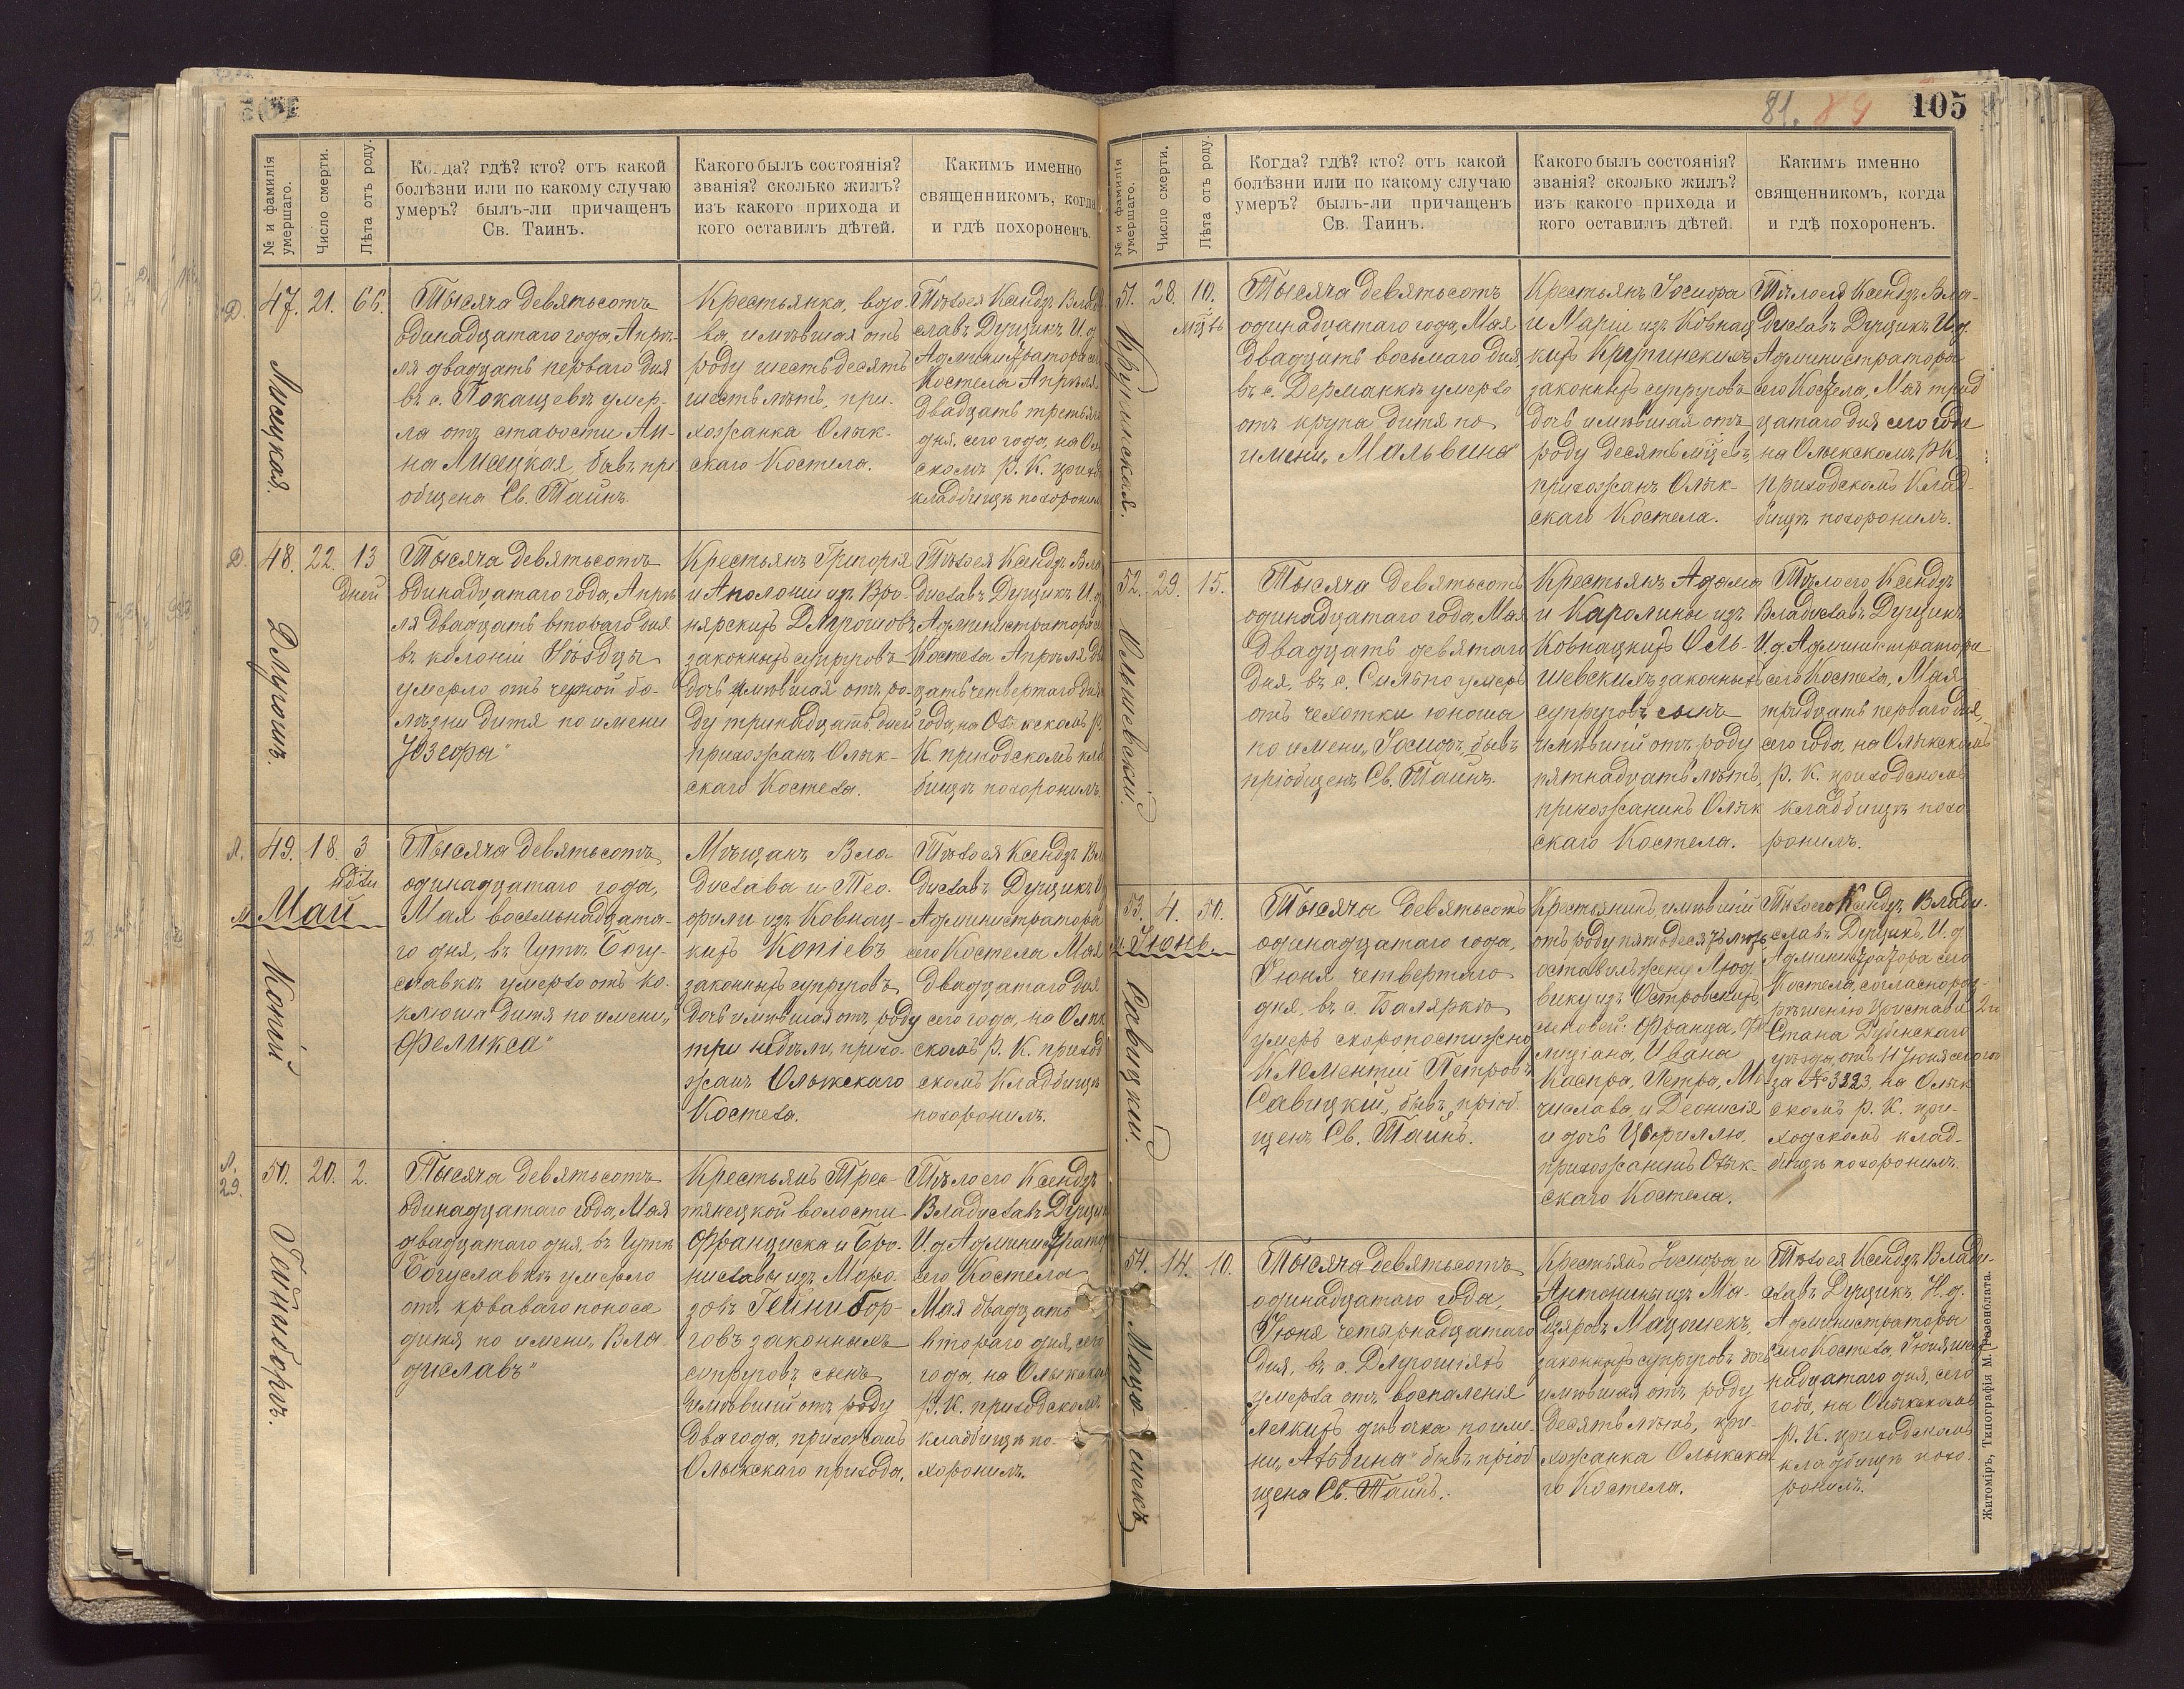 81. 84 105
№ и фамилія умершаго.
Число смерти.
Лѣта отъ роду.
Когда? гдѣ? кто? отъ какой
болѣзни или по какому случаю
умеръ? былъ-ли причащенъ
Св. Таинъ.
Какого былъ состоянія?
званія? сколько жилъ?
изъ какого прихода и
кого оставилъ дѣтей.
Каким именно
священникомъ, когда
и гдѣ похороненъ.
Д. 47. 21. 66.
Лисецкая.
Тысяча девятьсотъ
одинадцатаго года, Апрѣ-
ля двадцать перваго дня
въ с. Покащевѣ умер-
ла отъ старости Ан-
на Лисецкая, бывъ прі
общена Св. Таинъ.
Крестьянка, вдо-
ва, имѣвшая отъ
роду шестьдесятъ
шесть лѣтъ, при-
хожанка Олык-
скаго Костела.
Тѣло ея Ксендзъ Влад
славъ Дущикъ И. д.
Администратора се
Костела Апрѣля
двадцать третьяго
дня, сего года, на Ол
скомъ Р. К. приход
кладбищѣ похоронил
Д. 48. 22. 13
дней
Длугошъ.
Тысяча девятьсотъ
одинадцатаго года, Апрѣ
ля двадцать втораго дня
въ колоніи
умерло отъ черной бо-
лѣзни дитя по имени
Юзефа"
Крестьянъ Григорія
и Аполоніи изъ Вро-
нярскихъ Длугошовъ
законныхъ супруговъ
дочь имѣвшая отъ ро-
ду тринадцать дней
прихожанъ Олык-
скаго Костела.
Тѣло ея Ксендзъ Вла
диславъ Дущикъ И. д
Администратора се
Костела Апрѣля дв
цать четвертаго дня
года, на Олыкскомъ Р.
К. приходскомъ кла
бищѣ похоронилъ.
Л. 49. 18. 3
нѣдѣли
М. Май
Копій
Тысяча девятьсотъ
одинадцатаго года,
Мая восемьнадцата-
го дня, въ Гутѣ Богу-
славкѣ умерло отъ ко-
клюша дитя по имени„
Феликса"
Мѣщанъ Вла
дислава и Тео-
фили изъ Ковнац-
кихъ Копіевъ
законныхъ супруговъ
дочь имѣвшая отъ роду
три недѣли, прихо-
жанъ Олыкскаго
Костела.
Тѣло ея Ксендзъ Вл
диславъ Дущикъ И
Администратора
сего Костела Мая
двадцатаго дня
сего года, на Олык
скомъ Р. К. приход
скомъ Кладбищѣ
похоронилъ.
Л.
29. 50. 20. 2.
Гейнигборгъ.
Тысяча девятьсотъ
одинадцатаго года, Мая
двадцатаго дня, въ Гутѣ
Богуславкѣ умерло
отъ кроваваго поноса
дитя по имени„ Вла
диславъ"
Крестьянъ Трос-
тянецкой волости
Франциска и Бро-
ниславы изъ Моро-
зовъ Гейнигбор-
говъ законныхъ
супруговъ сынъ
имѣвшій отъ роду
два года, прихожанъ
Олыкскаго прихода,
Тѣло его Ксендзъ
Владиславъ Дущик
И. д Администратор
сего Костела
Мая двадцать
втораго дня, сего
года, на Олыкском
Р. К. приходскомъ
кладбищѣ по-
хоронилъ.
№ и фамилія умершаго.
Число смерти.
Лѣта отъ роду.
Когда? гдѣ? кто? отъ какой
болѣзни или по какому случаю
умеръ? былъ-ли причащенъ
Св. Таинъ.
Какого былъ состоянія?
званія? сколько жилъ?
изъ какого прихода и
кого оставилъ дѣтей.
Какимъ именно
священникомъ, когда
и гдѣ похороненъ.
51. 28. 10.
мѣць
Крупинская.
Тысяча девятьсотъ
одинадцатаго года, Мая
двадцать восьмаго дня,
въ с. Дерманкѣ умерло
отъ крупа дитя по
имени„ Мальвина"
Крестьянъ Іосифа
и Маріи изъ Ковнац
кихъ Крупинскихъ
законныхъ супруговъ
дочь имѣвшая отъ
роду десять мѣцевъ,
прихожанъ Олык-
скаго Костела.
Тѣло ея Ксендзъ Вла-
диславъ Дущикъ И. д.
Администратора
сего Костела, Мая трид
цатаго дня сего года
на Олыкскомъ Р.К.
приходскомъ Клад-
бищѣ похоронилъ.
52. 29. 15.
Ольшевскій.
Тысяча девятьсотъ
одинадцатаго года, Мая
двадцать девятаго
дня, въ с. Сильно умеръ
отъ чехотки юноша
по имени„ Іосифъ, бывъ
пріобщенъ Св. Таинъ.
Крестьянъ Адама
и Каролины изъ
Ковнацкихъ Оль-
шевскихъ законныхъ
супруговъ сынъ
имѣвшій отъ роду
пятнадцать лѣтъ,
прихожанинъ Олык
скаго Костела.
Тѣло его, Ксендзъ
Владиславъ Дущикъ
И. д. Администратора
сего Костела, Мая
тридцать перваго дня,
сего года, на Олыкскомъ
Р. К. приходскомъ
кладбищѣ похо
ронилъ.
53. 4. 50.
Іюнь.
Савицкій.
Тысяча девятьсотъ
одинадцатаго года,
Іюня четвертаго
дня, въ с. Баляркѣ
умеръ скоропостижно
Клементій Петровъ
Савицкій, бывъ пріоб
щенъ Св. Таинъ.
Крестьянинъ, имѣвшій
отъ роду пятьдесятъ лѣтъ
оставилъ жену Люд-
вику изъ Островскихъ
сыновей: Франца, Фе
лиціана, Ивана
Каспра, Петра, Ме
числава, и Деонисія
и дочь Цефилію,
прихожанинъ Олык-
скаго Костела.
Тѣло его Ксендзъ Влади-
славъ Дущикъ, И. д.
Администратора сего
Костела, согласно раз-
рѣшенію Пристава 2го
Стана Дубенскаго
уѣзда, отъ Іюня сего года
за № 3223, на Олык
скомъ Р. К. при-
ходскомъ клад-
бищѣ похоронилъ.
54. 14. 10.
Мацошекъ
Тысяча девятьсотъ
одинадцатаго года,
Іюня четырнадцатаго
дня, въ с. Длугошіяхъ
умерла отъ воспаленія
легкихъ дѣвочка по име-
ни„ Альбина" бывъ пріоб
щена Св. Таинъ.
Крестьянъ Іосифа и
Антонины изъ Ма-
Мацошекъ,
законныхъ супруговъ дочь
имѣвшая отъ роду
десять лѣтъ, при-
хожанка Олыкска
го Костела.
Тѣло ея Ксендзъ Влади-
славъ Дущикъ, И. д.
Администратора
сего Костела, Іюня шест
надцатаго дня, сего
года, на Олыкскомъ
Р. К. приходскомъ
кладбищѣ похо-
ронилъ.
Житоміръ, Типографія М. Розенблата.